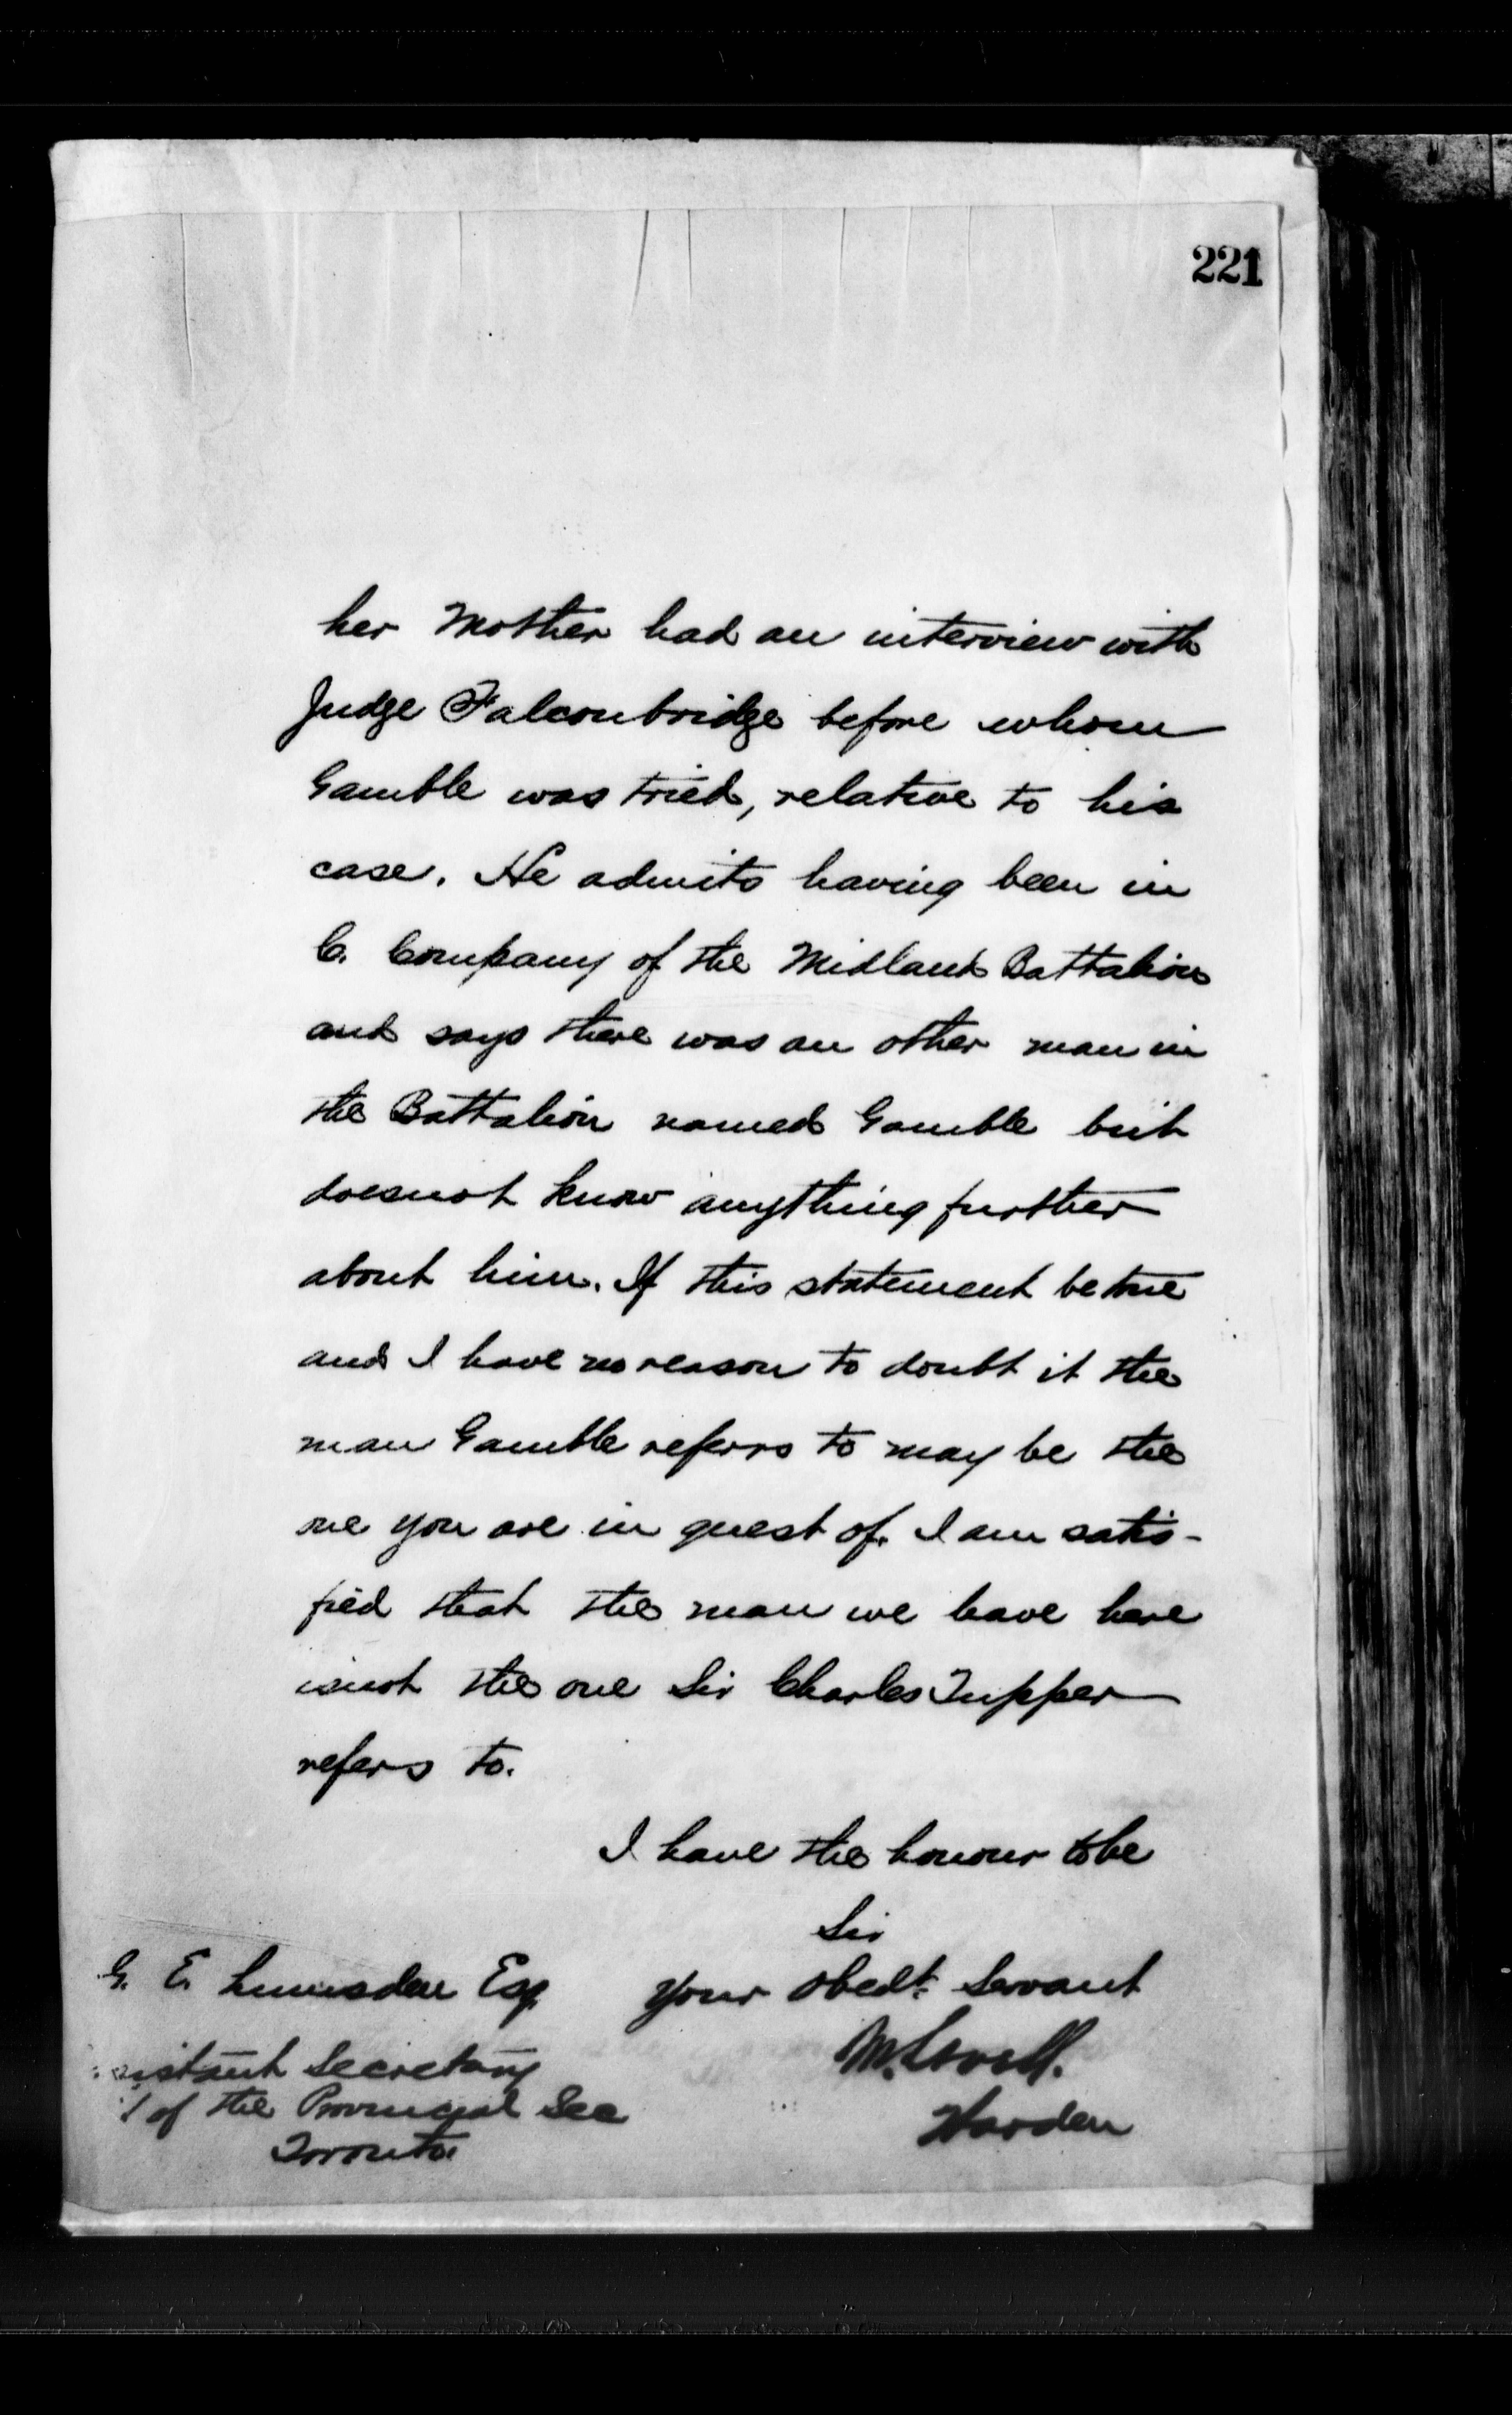 221
her Mother had an interview with
Judge Falconbridge before whom
Gamble was tried, relative to his
case. He admits having been in
C. Company of the Midland Battalion
and says there was an other man in
the Battalion named Gamble but
does not know anything further
about him. If this statement be true
and I have no reason to doubt it the
man Gamble referrs to may be the
one you are in quest of. I am satis-
fied that the man we have here
is not the one Sir Charles Tupper
refers to.
I have the honour to be
Sir
G. E. Lumsden Esq. your obedt. Servant
M.
istant Secretary
of the Provincial Sec
Warden
Toronto.